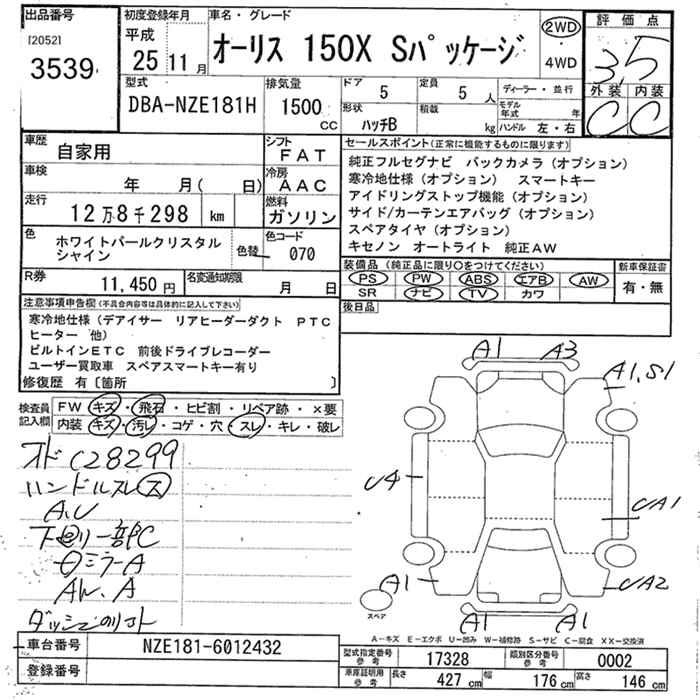 出品番号
[2052]
3539
初度登録年月
平成
25 11月
車名・グレード
オーリス 150X Sパッケージ
2WD
・
4WD
評価点
3,5
外装 内装
C C
型式
DBA-NZE181H
排気量
1500
cc
ドア
5
定員
5 人
ディーラー・並行
モデル年式 年
形状
ハッチB
積載
kg
ハンドル 左・右
車歴
自家用
シフト
FAT
車検
年 月( 日)
冷房
AAC
走行
12万8千298 km
燃料
ガソリン
色
ホワイトパールクリスタル
シャイン
色替
色コード
070
R券
11,450円
名変通知期限
月 日
セールスポイント(正常に機能するものに限ります)
純正フルセグナビ バックカメラ(オプション)
寒冷地仕様(オプション) スマートキー
アイドリングストップ機能(オプション)
サイド/カーテンエアバッグ(オプション)
スペアタイヤ(オプション)
キセノン オートライト 純正AW
装備品(純正品に限り○をつけてください)
PS PW ABS エアB AW
SR ナビ TV カワ
新車保証書
有・無
後日品
注意事項申告欄(不具合内容等は具体的に記入して下さい)
寒冷地仕様(デアイサー リアヒーターダクト PTC
ヒーター 他)
ビルトインETC 前後ドライブレコーダー
ユーザー買取車 スペアスマートキー有り
修復歴 有〔箇所 〕
検査員
記入欄
FW キズ・飛石・ヒビ割・リペア跡・×要
内装 キズ・汚レ・コゲ・穴・スレ・キレ・破レ
ハンドルスレ
A.U
A1 A3
A1,S1
U4
UA1
A1
UA2
A1 A1
スペア
A-キズ E-エクボ U-凹み W-補修跡 S-サビ C-腐食 XX-交換済
車台番号
NZE181-6012432
登録番号
型式指定番号
参考
17328
類別区分番号
参考
0002
車庫証明用
参考
長さ
427 cm
幅
176 cm
高さ
146 cm